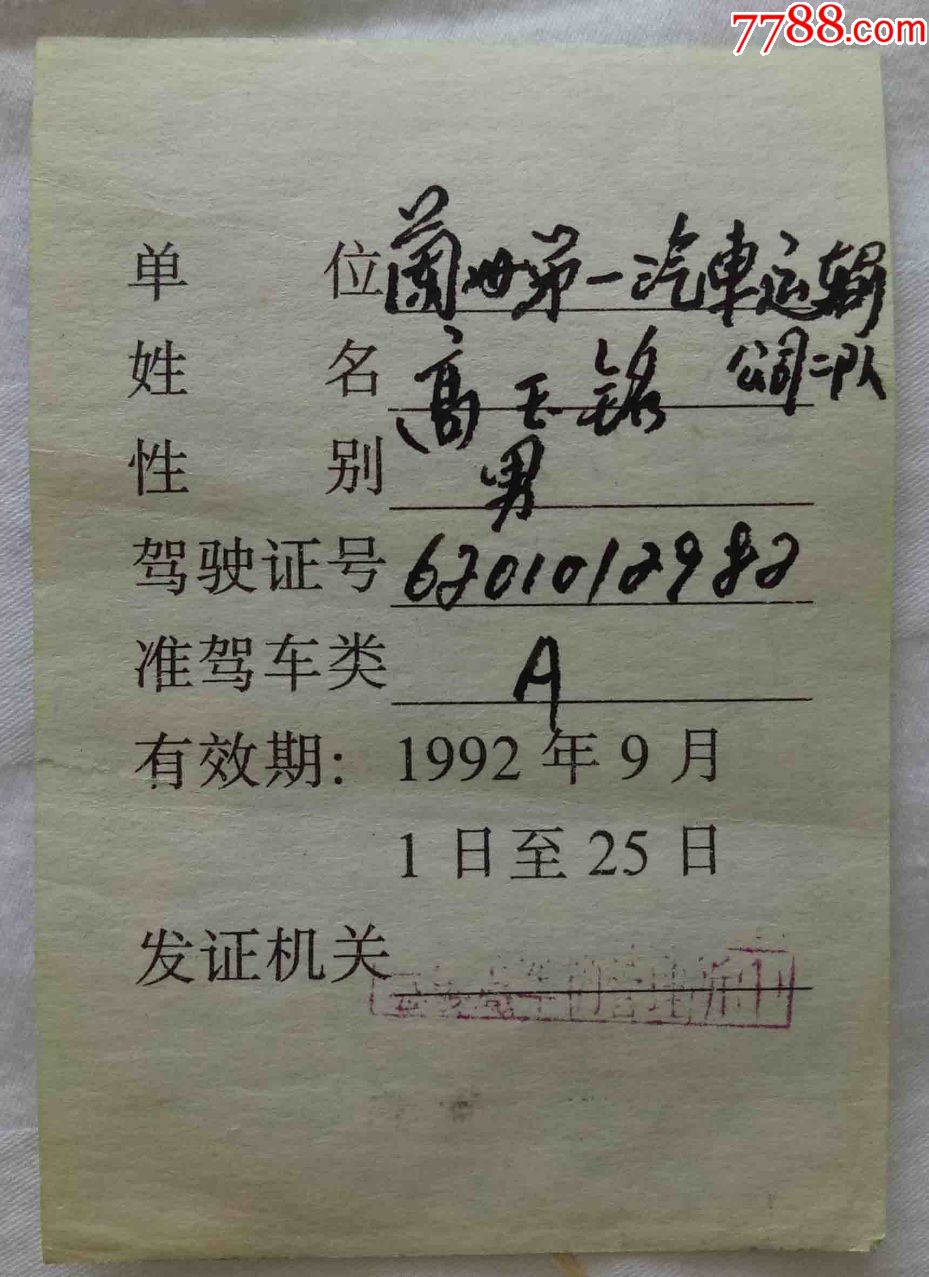 7788.com
单位 蘭州第一汽車运输
公司二队
姓名 高玉铭
性别 男
驾驶证号 6201012982
准驾车类 A
有效期：1992年9月
1日至25日
发证机关